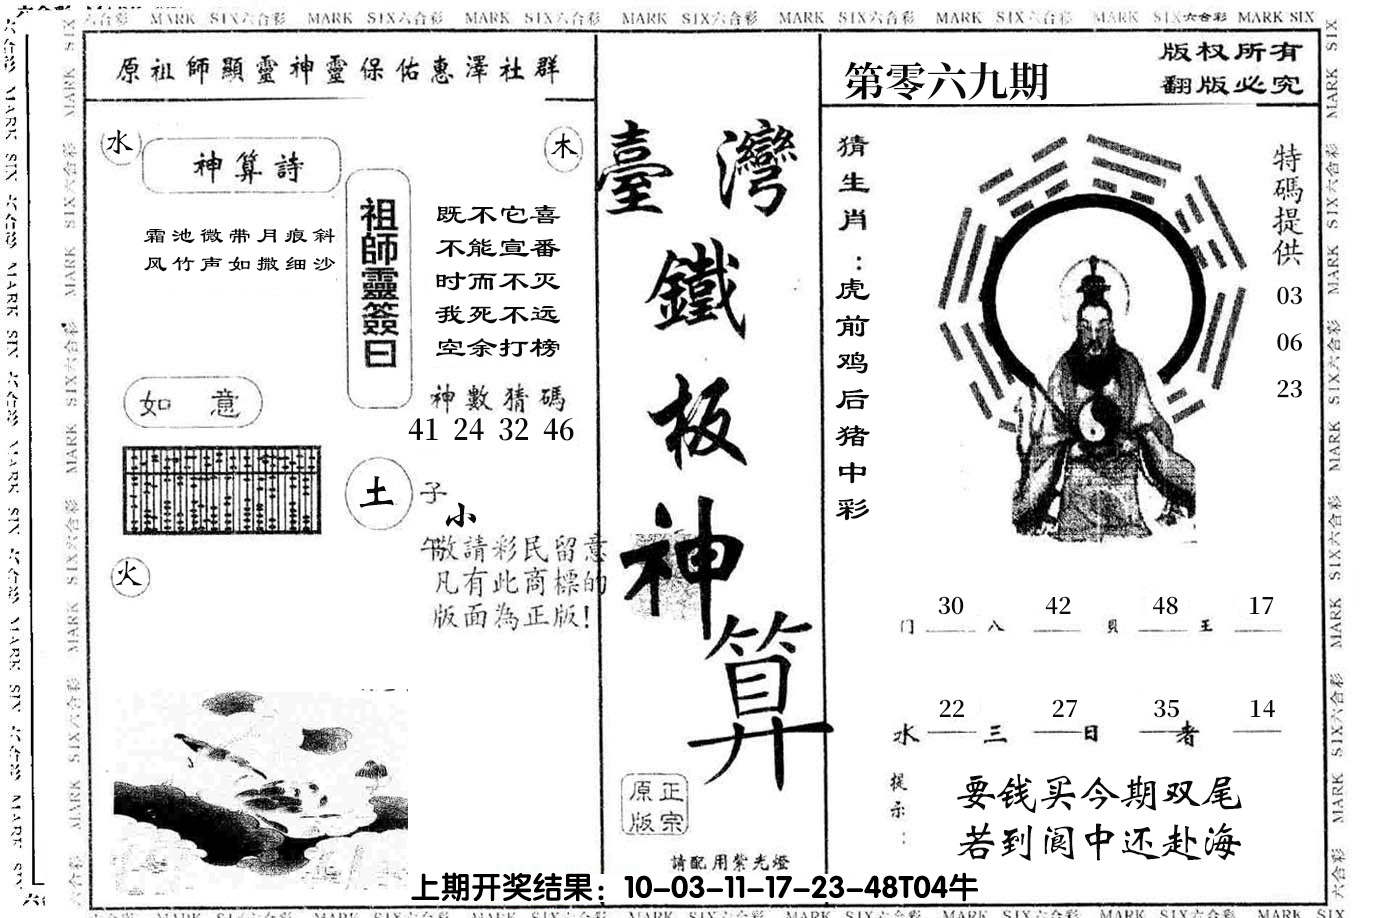 MARK SIX六合彩 MARK SIX六合彩 MARK SIX六合彩 MARK SIX六合彩 MARK SIX六合彩 MARK SIX六合彩 MARK SIX六合彩 MARK SIX
原祖師顯靈神靈保佑惠澤社群
第零六九期
版权所有
翻版必究
水
神算詩
木
霜池微带月痕斜
风竹声如撒细沙
祖師靈簽曰
既不它喜
不能宣番
时而不灭
我死不远
空余打榜
神數猜碼
41 24 32 46
如意
土
子
小
午
敬請彩民留意
凡有此商標的
版面為正版!
火
臺灣
鐵
板
神
算
正宗
原版
請配用紫光燈
猜生肖:虎前鸡后猪中彩
特碼提供
03
06
23
30 42 48 17
门 八 貝 王
22 27 35 14
水 三 日 者
提示:
要钱买今期双尾
若到阆中还赴海
上期开奖结果：10-03-11-17-23-48T04牛